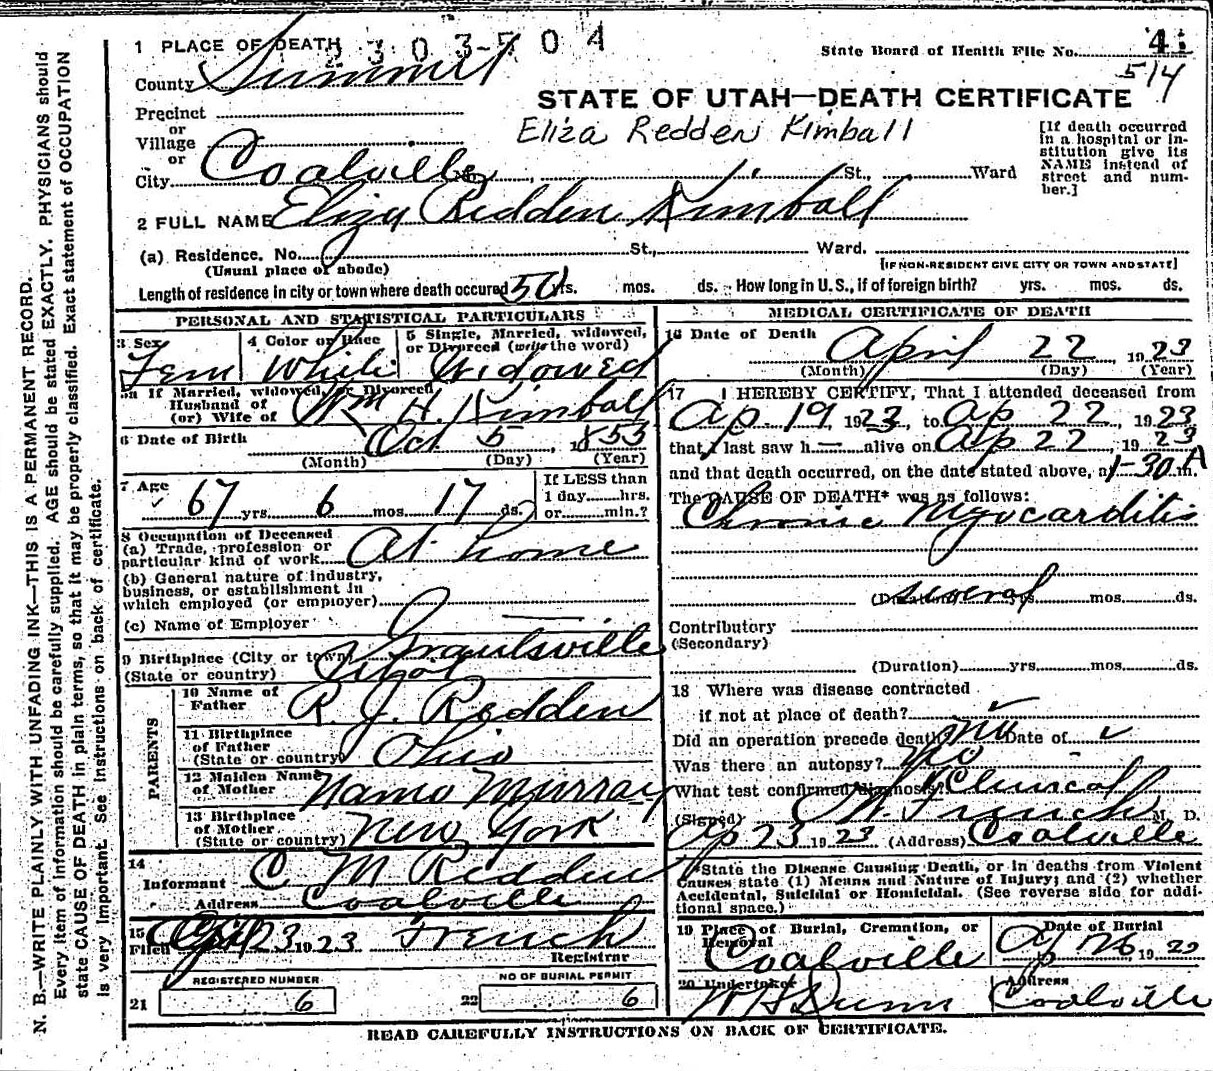 1 PLACE OF DEATH 2303-504 State Board of Health File No. 4
514
County Summit
STATE OF UTAH—DEATH CERTIFICATE
Precinct
or
Village
or
City Coalville St., Ward
Eliza Redden Kimball
[If death occurred in a hospital or institution give its NAME instead of street and number.]
2 FULL NAME Eliza Redden Kimball
(a) Residence. No. St., Ward.
(Usual place of abode) [IF NON-RESIDENT GIVE CITY OR TOWN AND STATE]
Length of residence in city or town where death occured 50 yrs. mos. ds. How long in U. S., if of foreign birth? yrs. mos. ds.
PERSONAL AND STATISTICAL PARTICULARS
3 Sex 4 Color or Race 5 Single, Married, widowed, or Divorced (write the word)
Fem White Widowed
5a If Married, widowed, or Divorced
Husband of
(or) Wife of Wm H. Kimball
6 Date of Birth Oct 5 1853
(Month) (Day) (Year)
7 Age 67 yrs. 6 mos. 17 ds.
If LESS than
1 day hrs.
or min.?
8 Occupation of Deceased
(a) Trade, profession or
particular kind of work At home
(b) General nature of industry,
business, or establishment in
which employed (or employer)
(c) Name of Employer
9 Birthplace (City or town)
(State or country)
PARENTS
10 Name of
Father R. J. Redden
11 Birthplace
of Father
(State or country) Ohio
12 Maiden Name
of Mother Murray
13 Birthplace
of Mother
(State or country) New York
14
Informant C M Redden
Address Coalville
15
Filed 23 1923 French
Registrar
REGISTERED NUMBER NO OF BURIAL PERMIT
21 6 22 6
MEDICAL CERTIFICATE OF DEATH
16 Date of Death April 22 1923
(Month) (Day) (Year)
17 I HEREBY CERTIFY, That I attended deceased from
Ap. 19 1923, to Ap 22 1923
that I last saw h alive on Ap 22 1923
and that death occurred, on the date stated above, at 1-30 A m.
The CAUSE OF DEATH* was as follows:
Chronic Myocarditis
(Duration) several yrs. mos. ds.
Contributory
(Secondary)
(Duration) yrs. mos. ds.
18 Where was disease contracted
if not at place of death?
Did an operation precede death? no Date of
Was there an autopsy? No
What test confirmed diagnosis? Clinical
(Signed) French M. D.
Ap 23 1923 (Address) Coalville
*State the Disease Causing Death, or in deaths from Violent
Causes state (1) Means and Nature of Injury; and (2) whether
Accidental, Suicidal or Homicidal. (See reverse side for addi-
tional space.)
19 Place of Burial, Cremation, or Removal Date of Burial
Coalville Ap 26 1923
20 Undertaker Address
W H Dunn Coalville
READ CAREFULLY INSTRUCTIONS ON BACK OF CERTIFICATE.
N. B.—WRITE PLAINLY WITH UNFADING INK—THIS IS A PERMANENT RECORD.
Every item of information should be carefully supplied. AGE should be stated EXACTLY. PHYSICIANS should
state CAUSE OF DEATH in plain terms, so that it may be properly classified. Exact statement of OCCUPATION
is very important. See instructions on back of certificate.